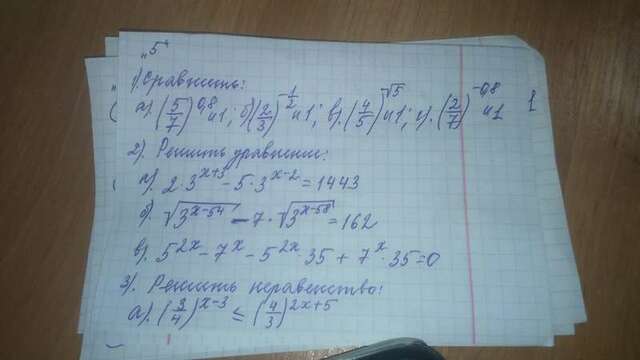 „5"
1) Сравнить:
а). (5/7)^0,8 и 1; б) (2/3)^-1/2 и 1; в). (4/5)^√5 и 1; г). (2/7)^-0,8 и 1
1
2). Решить уравнение:
а). 2·3^x+3 - 5·3^x-2 = 1443
б). √3^x-54 - 7·√3^x-58 = 162
в). 5^2x - 7^x - 5^2x·35 + 7^x·35 = 0
3). Решить неравенство:
а). (3/4)^x-3 ≤ (4/3)^2x+5